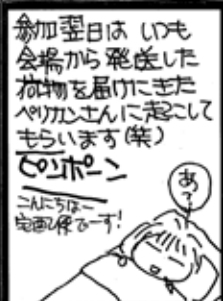 参加翌日は いつも
会場から発送した
荷物を届けにきた
ペリカンさんに起こして
もらいます(笑)
ピンポーン
こんにちはー
宅配便でーす!
あ?